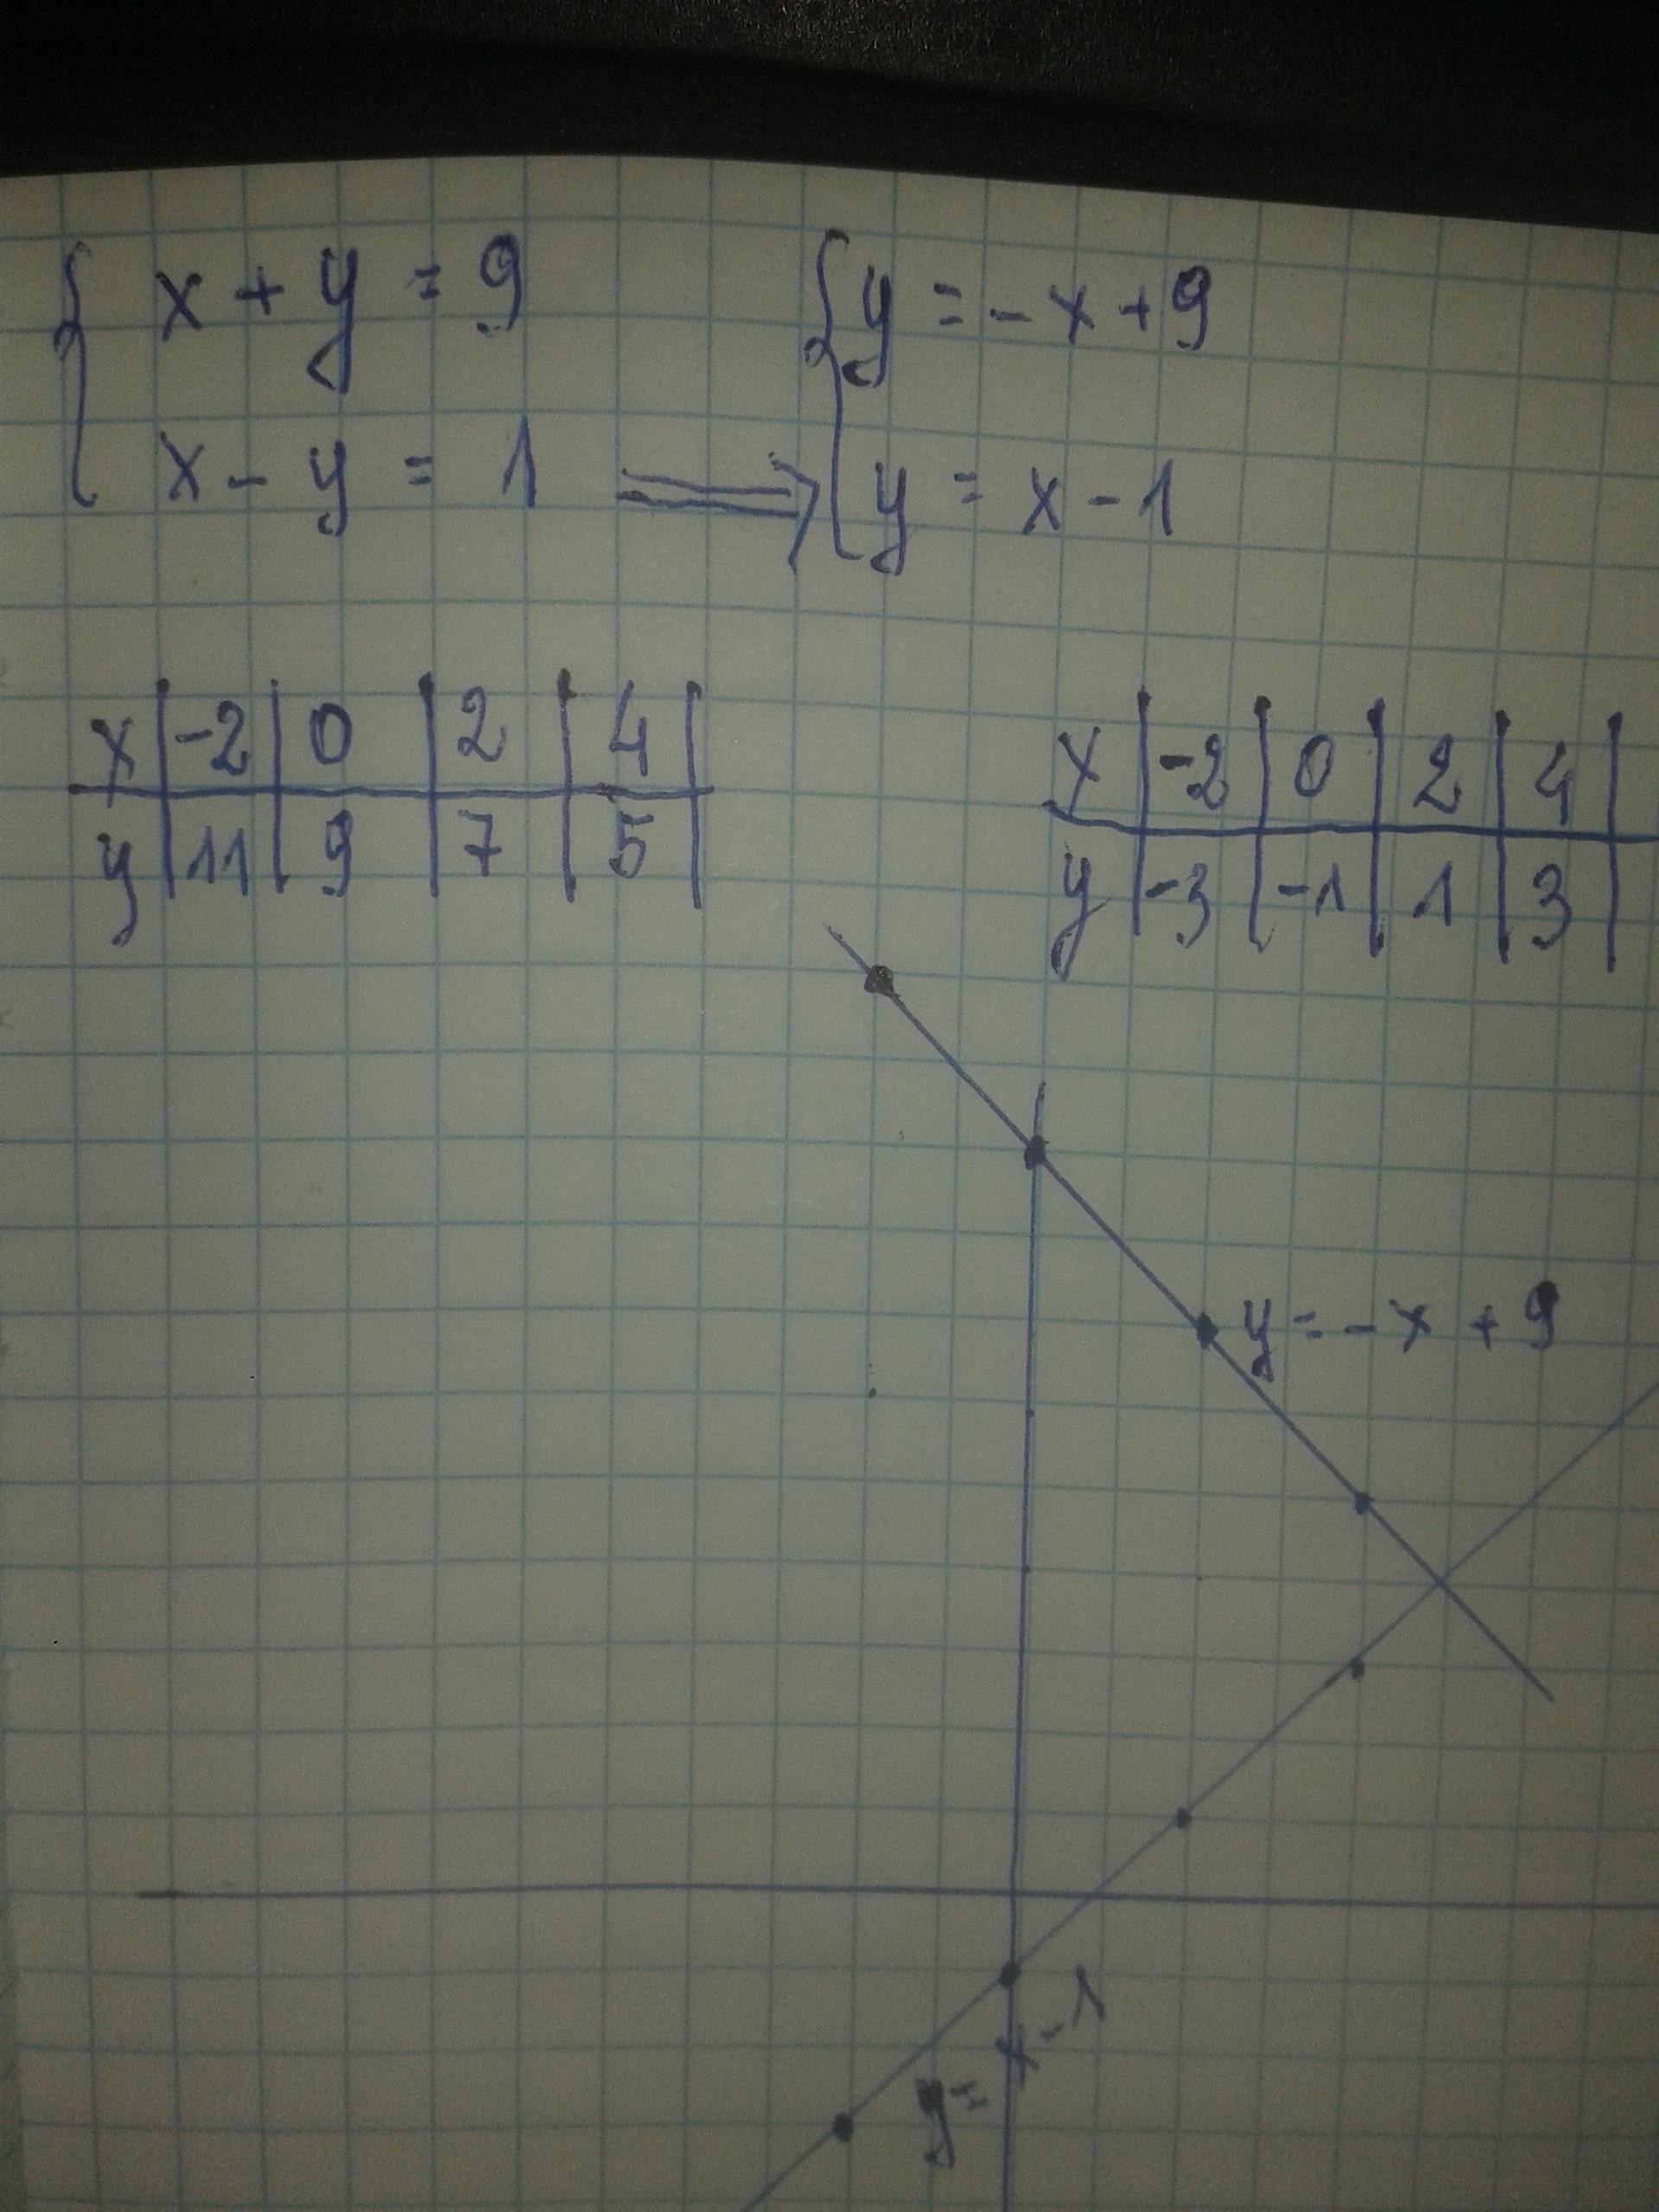 { x + y = 9
x - y = 1 ⟹
{ y = -x + 9
y = x - 1
x | -2 | 0 | 2 | 4 |
y | 11 | 9 | 7 | 5 |
x | -2 | 0 | 2 | 4 |
y | -3 | -1 | 1 | 3 |
y = -x + 9
y = x - 1